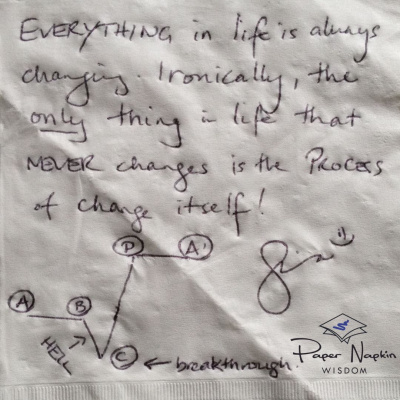 EVERYTHING in life is always
changing. Ironically, the
only thing in life that
NEVER changes is the PROCESS
of change itself!
D A'
A B
HELL
C ← breakthrough.
Paper Napkin
WISDOM